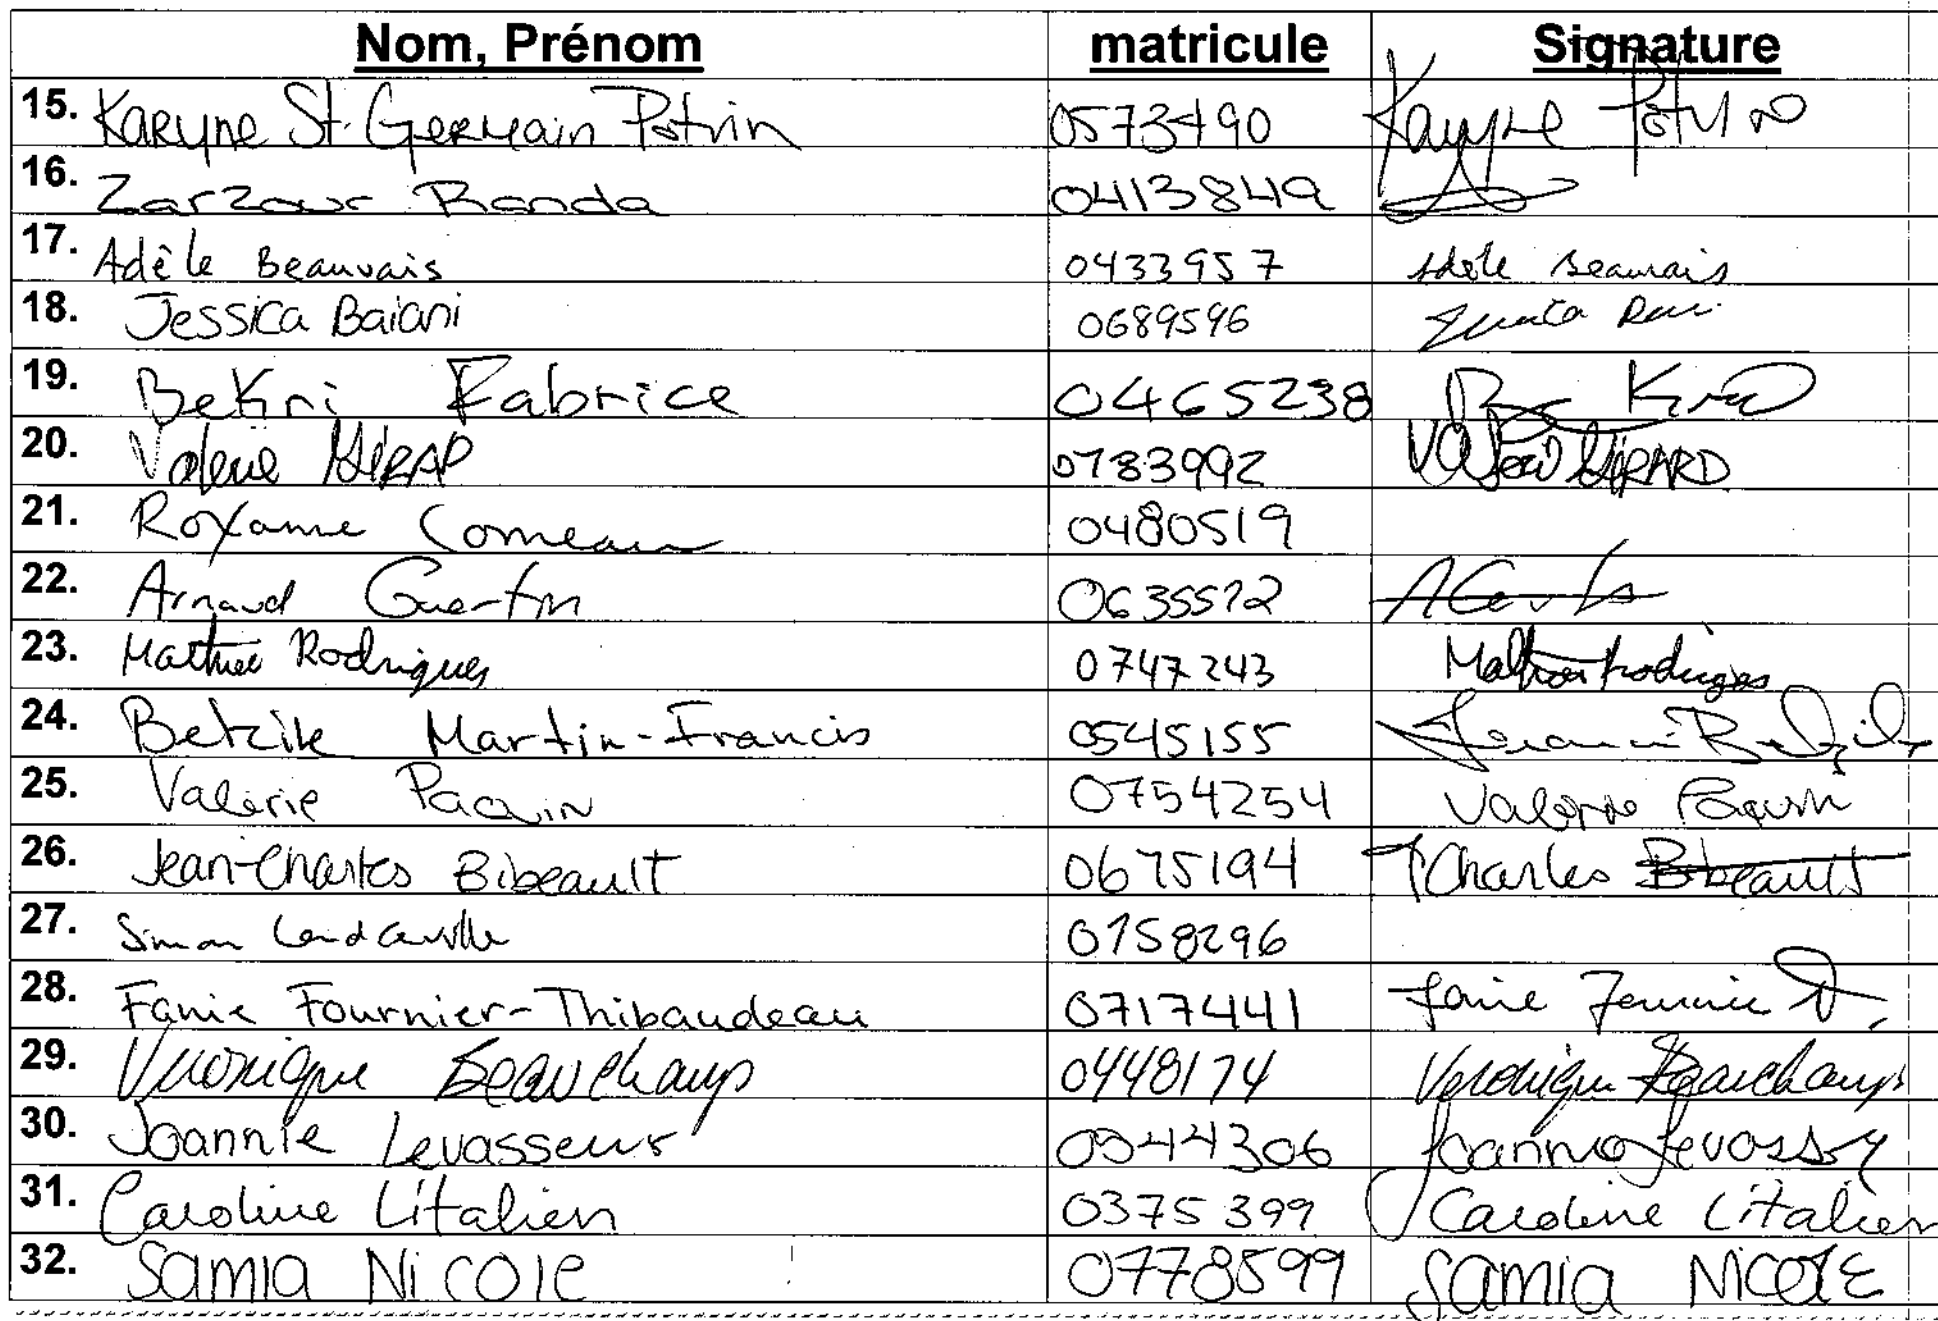 Nom, Prénom matricule Signature
15. Karyne St-Germain Potvin 0573490 Karyne Potvin
16. Zarzour Randa 0413849
17. Adèle Beauvais 0433957 Adèle Beauvais
18. Jessica Baiani 0689596
19. Bekri Fabrice 0465238
20. Valerie 0783992 GIRARD
21. Roxanne Comeau 0480519
22. Arnaud Guertin 0635572
23. Mathieu Rodrigues 0747243 Rodrigues
24. Martin-Francis 0545155
25. Valérie Paquin 0754254 Valerie Paquin
26. Jean-Charles Bibeault 0675194 JCharles Bibeault
27. Simon 0758296
28. Fanie Fournier-Thibaudeau 0717441 Fanie
29. Véronique Beauchamp 0448174 Véronique Beauchamp
30. Joannie Levasseur 0544306 Joannie
31. Caroline Litalien 0375399 Caroline Litalien
32. Samia Nicole 0778599 Samia NicolE